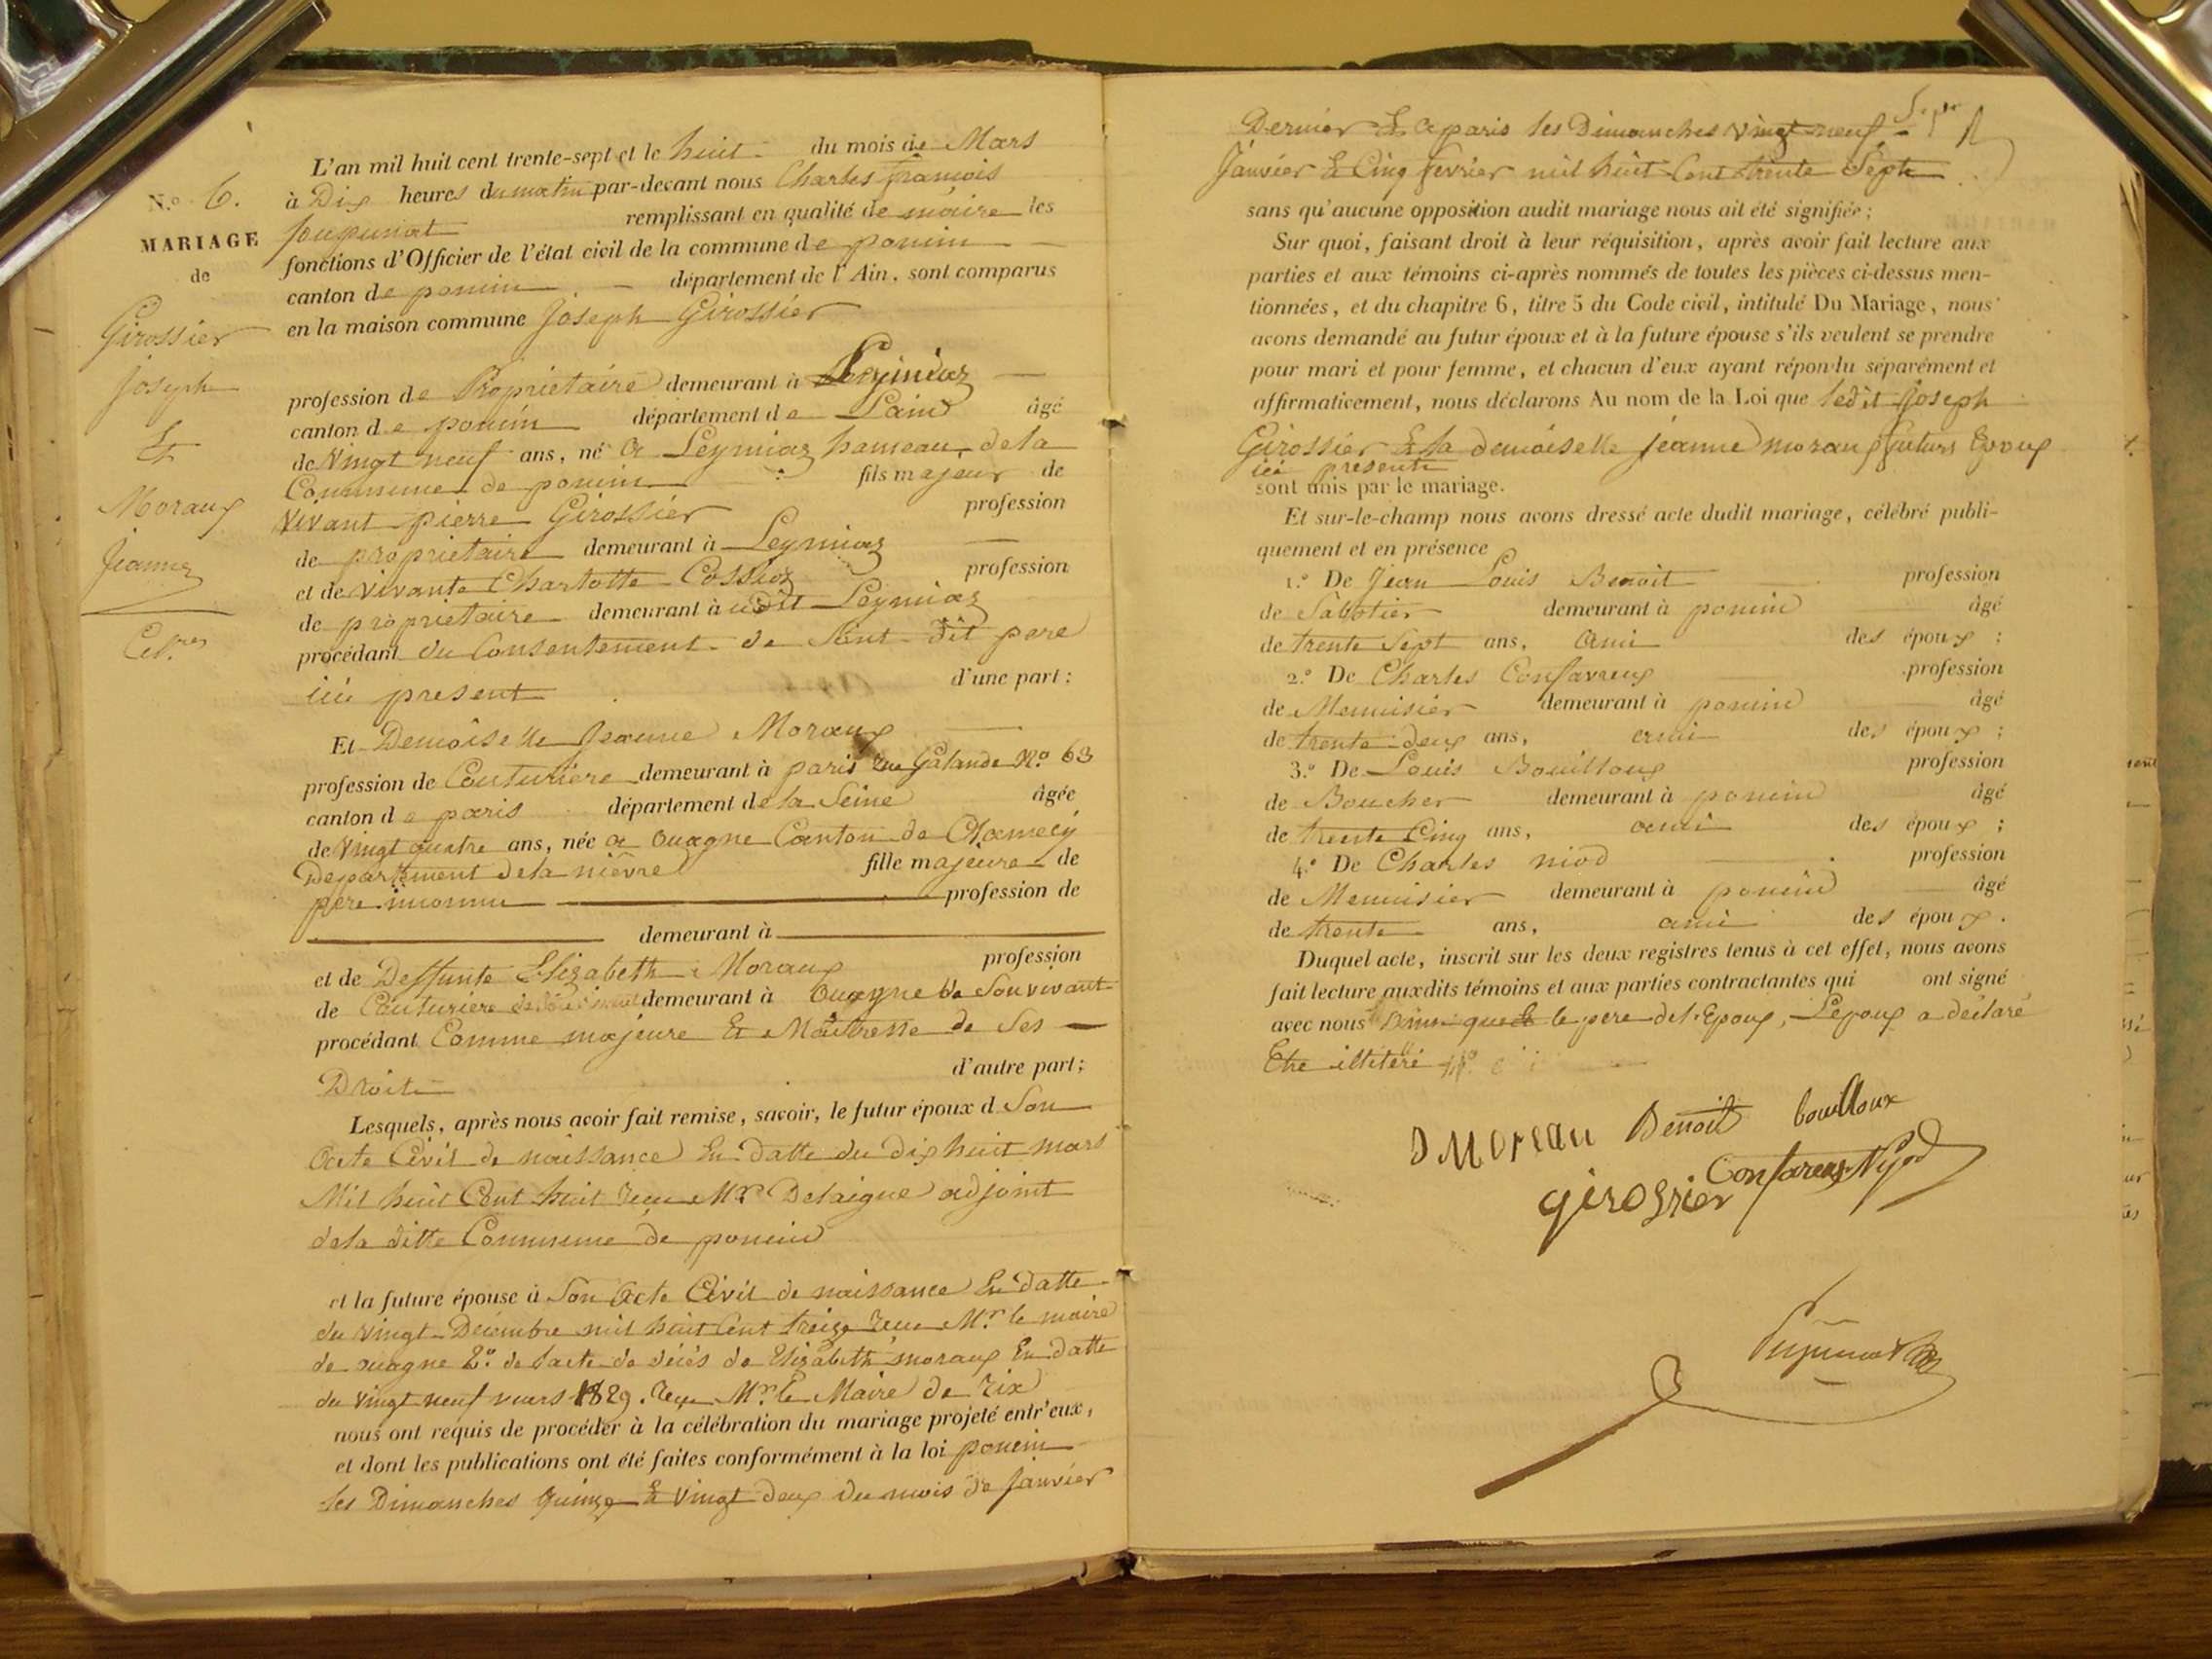 N.º 6.
MARIAGE
de
Girossier
Joseph
Et
Moraux
Jeanne
L'an mil huit cent trente-sept et le huit du mois de Mars
à Dix heures du matin par-devant nous Charles francois
remplissant en qualité de maire les
fonctions d'Officier de l'état civil de la commune de poncin
canton de poncin département de l'Ain, sont comparus
en la maison commune Joseph Girossier
profession de Proprietaire demeurant à Leymiaz
canton de poncin département de Lain âgé
de Vingt neuf ans, né a Leymiaz hameau de la
Commune de poncin fils majeur de
Vivant pierre Girossier profession
de proprietaire demeurant à Leymiaz
et de vivante Charlotte profession
de proprietaire demeurant à udit Leymiaz
procédant du Consentement de Sont dit pere
ici present d'une part ;
Et Demoiselle Jeanne Moraux
profession de Couturiere demeurant à paris rue Galande Nº 63
canton de paris département de la Seine âgée
de Vingt quatre ans, née a Ouagne Canton de Clamecÿ
Departement dela nièvre fille majeure de
père inconnu profession de
demeurant à
et de Deffunte Elizabeth Moraux profession
de Couturiere demeurant à Ouagne de Son vivant
procédant Comme majeure Et Maitresse de Ses
Droits d'autre part ;
Lesquels, après nous avoir fait remise, savoir, le futur époux d Son
Acte Civil de naissance En datte du dix huit mars
Mil huit Cent huit recu Mr Delaigue adjoint
dela ditte Commune de poncin
et la future épouse d Son Acte Civil de naissance En datte
du vingt Decembre mil huit Cent treize recu Mr le maire
de ouagne 2º de l'acte de décés de Elizabeth moraux En datte
du vingt neuf mars 1829. recu Mr le Maire de rix
nous ont requis de procéder à la célébration du mariage projeté entr'eux,
et dont les publications ont été faites conformément à la loi poncin
les Dimanches quinze Et Vingt deux du mois de Janvier
Dernier Et a paris les Dimanches vingt neuf
Janvier Et Cinq fevrier mil huit Cent trente Sept
sans qu'aucune opposition audit mariage nous ait été signifiée ;
Sur quoi, faisant droit à leur réquisition, après avoir fait lecture aux
parties et aux témoins ci-après nommés de toutes les pièces ci-dessus men-
tionnées, et du chapitre 6, titre 5 du Code civil, intitulé Du Mariage, nous
avons demandé au futur époux et à la future épouse s'ils veulent se prendre
pour mari et pour femme, et chacun d'eux ayant répondu séparément et
affirmativement, nous déclarons Au nom de la Loi que ledit Joseph
Girossier Et la demoiselle Jeanne moraux futurs Epoux
ici presents
sont unis par le mariage.
Et sur-le-champ nous avons dressé acte dudit mariage, célébré publi-
quement et en présence
1.º De Jean Louis Benoit profession
de Sabotier demeurant à poncin âgé
de trente Sept ans, ami des époux ;
2.º De Charles Confavreux profession
de Menuisier demeurant à poncin âgé
de trente deux ans, ami des époux ;
3.º De Louis Bouilloux profession
de Boucher demeurant à poncin âgé
de trente Cinq ans, ami des époux ;
4.º De Charles niod profession
de Menuisier demeurant à poncin âgé
de trente ans, ami des époux.
Duquel acte, inscrit sur les deux registres tenus à cet effet, nous avons
fait lecture auxdits témoins et aux parties contractantes qui ont signé
avec nous le pere de l'Epoux, Lepoux a déclaré
Etre illitéré
Moreau Benoit bouilloux
girossier Confavreux